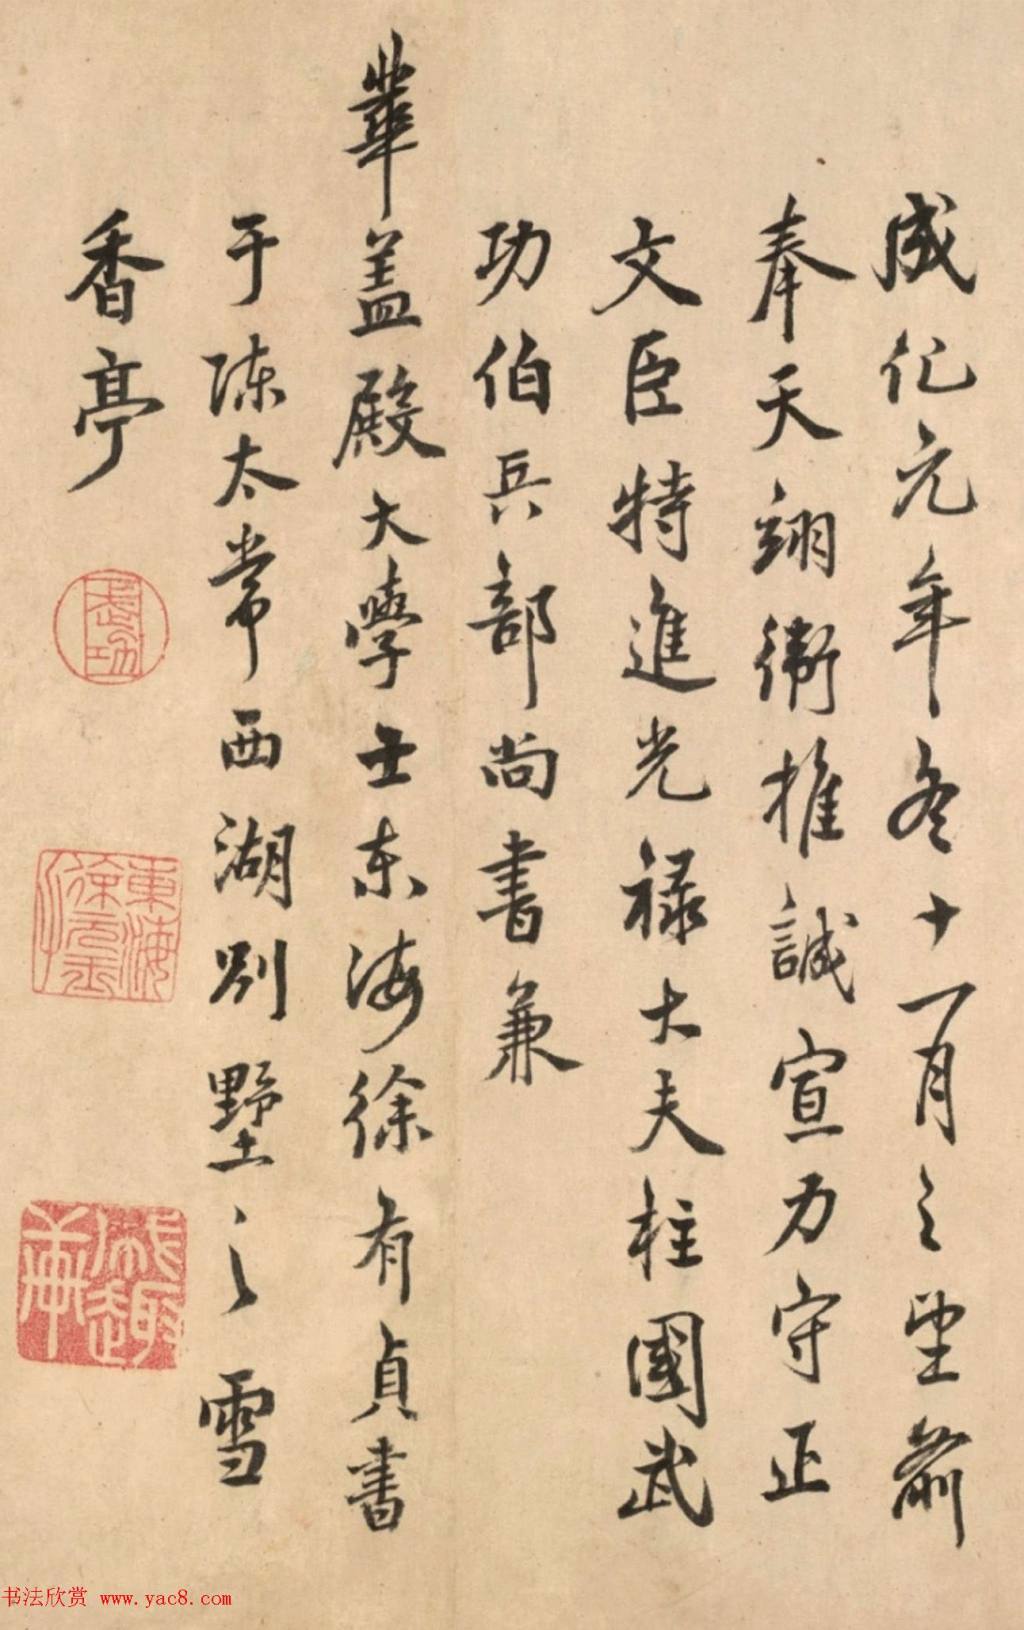 成化元年冬十一月之望前
奉天翊衛推誠宣力守正
文臣特進光祿大夫柱國武
功伯兵部尚書兼
華蓋殿大學士東海徐有貞書
于陳太常西湖別墅之雪
香亭
武功
東海徐元玉
书法欣赏 www.yac8.com